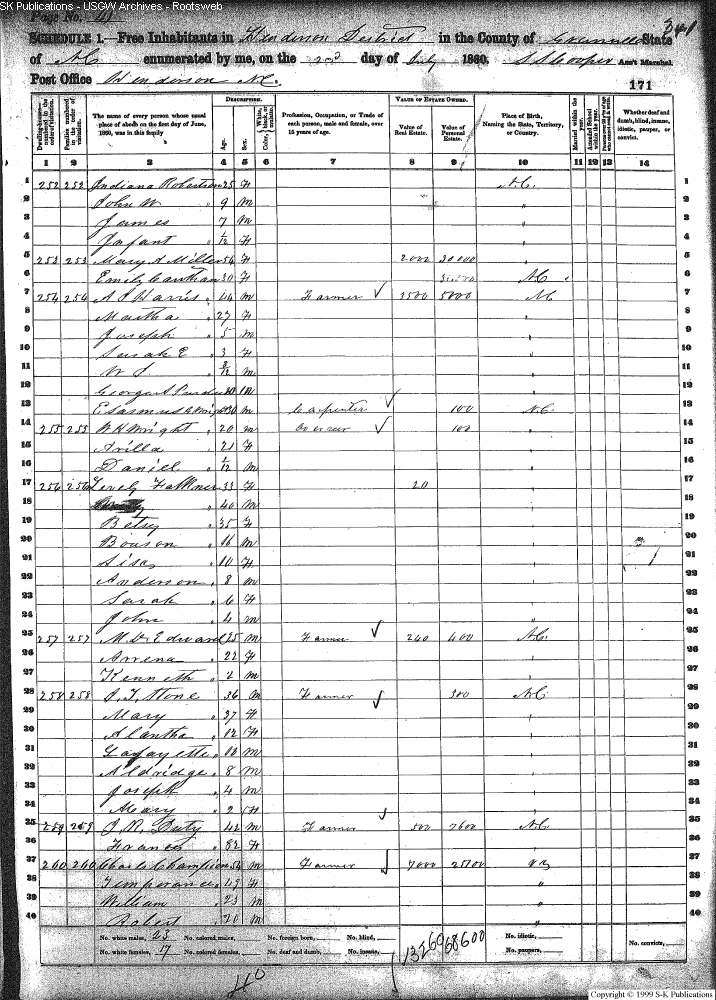 SK Publications - USGW Archives - Rootsweb
Page No. 41
SCHEDULE 1.—Free Inhabitants in Henderson District in the County of Granville State
of NC enumerated by me, on the day of July 1860. Cooper Ass't Marshal.
Post Office Henderson NC.
341
171
Dwelling-houses—numbered in the order of visitation.
Families numbered in the order of visitation.
The name of every person whose usual place of abode on the first day of June, 1860, was in this family
DESCRIPTION.
Age.
Sex.
Color, White, black, or mulatto.
Profession, Occupation, or Trade of each person, male and female, over 15 years of age.
VALUE OF ESTATE OWNED.
Value of Real Estate.
Value of Personal Estate.
Place of Birth, Naming the State, Territory, or Country.
Married within the year.
Attended School within the year.
Whether deaf and dumb, blind, insane, idiotic, pauper, or convict.
1 2 3 4 5 6 7 8 9 10 11 12 13 14
1 252 252 Indiana Robertson 25 F NC. 1
2 John W " 9 m " 2
3 James " 7 m 3
4 Infant " 1/12 F " 4
5 253 253 Mary A Miller 56 F 2000 30000 5
6 Emely Cawthan 30 F NC 6
7 254 254 A J Harris 44 m Farmer 3500 5000 NC 7
8 Martha " 27 F 8
9 Joseph " 5 m 9
10 Sarah E " 3 F 10
11 W S m 11
12 12
13 Erasmus Wright 30 m Carpenter 100 N.C. 13
14 255 255 W H Wright 20 m Overseer 100 14
15 Arilla " 21 F 15
16 Daniel " 1/12 m 16
17 256 256 Falkner 33 F 20 17
18 40 m 18
19 Betsy " 35 F 19
20 " 16 m 20
21 " 10 F 21
22 Anderson " 8 m 22
23 Sarah " 6 F 23
24 John " 4 m 24
25 257 257 Edwards 25 m Farmer 240 400 N.C. 25
26 Arrena " 22 F 26
27 Kenneth " 2 m 27
28 258 258 J. T. Stone 36 m Farmer 300 N.C. 28
29 Mary " 37 F 29
30 Alantha " 12 F 30
31 Lafayette " 10 m 31
32 Aldridge " 8 m 32
33 Joseph " 4 m 33
34 Mary " 2 F 34
35 259 259 J R. Duty 42 m Farmer 500 2600 N.C. 35
36 Frances " 32 F 36
37 260 260 Charles Champion 54 m Farmer 7000 37
38 Temperance " 49 F " 38
39 William " 23 m " 39
40 Robert " 20 m " 40
No. white males, 23 No. colored males, No. foreign born, No. blind, No. idiotic,
No. white females, 17 No. colored females, No. deaf and dumb, No. insane, No. paupers, No. convicts,
13260 68600
40
Copyright © 1999 S-K Publications